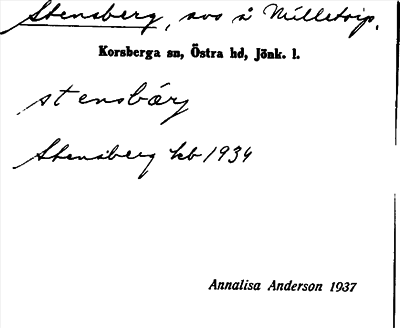 Stensberg, avs å Milletorp.
Korsberga sn, Östra hd, Jönk. l.
stensbärj
Stensberg kb 1934
Annalisa Anderson 1937